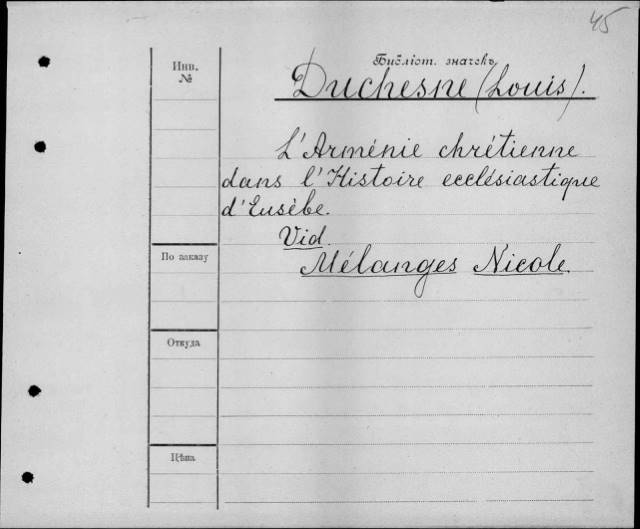 45
Библіот. значекъ
Инв.
№
Duchesne (Louis).
L'Arménie chrétienne
dans l'Histoire ecclésiastique
d'Eusèbe.
Vid.
Mélanges Nicole.
По заказу
Откуда
Цѣна